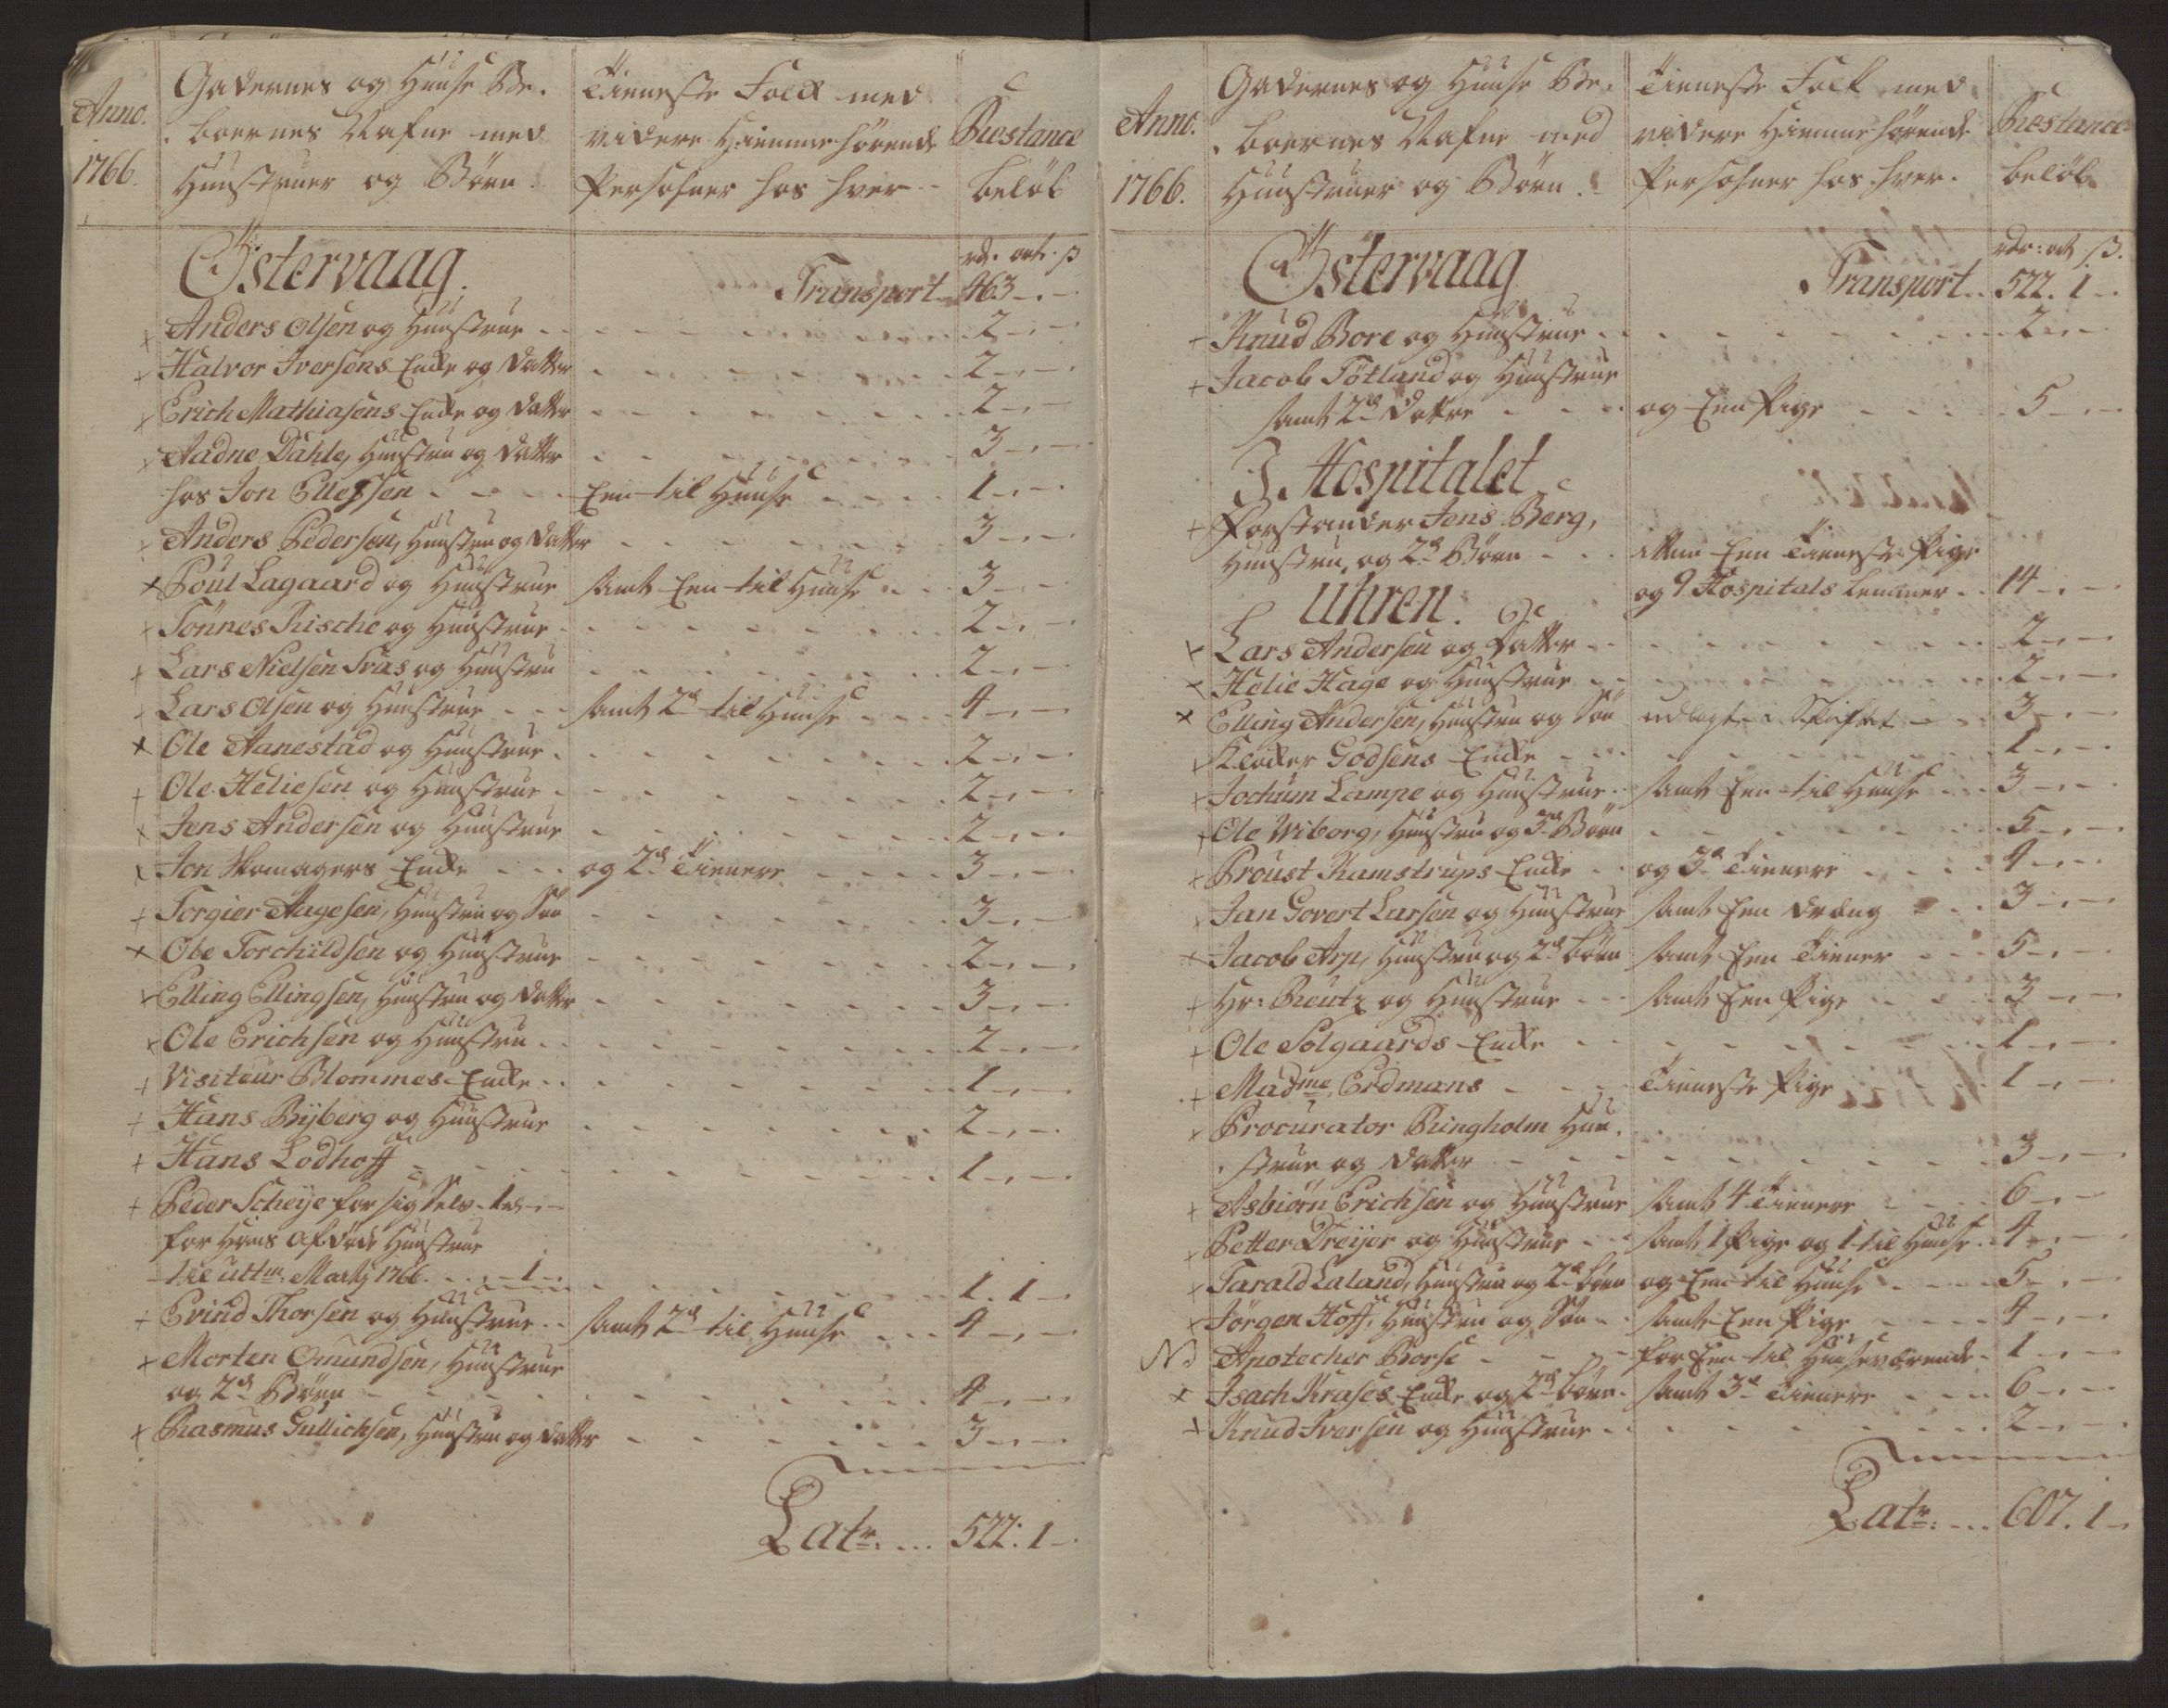 Anno.
1766.
Gadernes og Huuse Be-
boernes Nafne med
Huustruer og Börn.
Tieneste Folck med
videre Hiemmehörende
Persohner hos hver
Restance
belöb
Östervaag.
rd. ort. ß
Transport 463 - . -
Anders Olsen og Huustrue 2 - . -
Halvor Iversens Encke og Datter 2 - . -
Erich Mathiasens Encke og Datter 2 - . -
Aadne Dahle, Huustru og Datter 3 - . -
hos Jon Ellefsen Een til Huuse 1 - . -
Anders Pedersen, Huustru og Datter 3 - . -
Poul Lagaard og Huustrue samt Een til Huuse 3 - . -
Tönnes Rische og Huustrue 2 - . -
Lars Nielsen og Huustru 2 - . -
Lars Olsen og Huustrue samt 2de til Huuse 4 - . -
Ole Aanestad og Huustrue 2 - . -
Ole Heliesen og Huustrue 2 - . -
Jens Andersen og Huustrue 2 - . -
Jon Skomagers Encke og 2de Tienere 3 - . -
Torgier Aagesen, Huustru og Sön 3 - . -
Obe Torchildsen og Huustrue 2 - . -
Elling Ellingsen, Huustru og Datter 3 - . -
Ole Erichsen og Huustru 2 - . -
Visiteur Blommes Encke 1 - . -
Hans Ryberg og Huustrue 2 - . -
Hans Lodhoff 1 - . -
Peder Scheye for sig Selv 1 rd - . -
for Hans Afdöde Huustrue
til ultm. Marty 1766. - 1 - 1. 1 -
Evind Thorsen og Huustrue samt 2de til Huuse 4 - . -
Morten Omundsen, Huustrue
og 2de Börn 4 - . -
Rasmus Gullichsen, Huustru og Datter 3 - . -
Latr. 522: 1 -
Anno.
1766.
Gadernes og Huuse Be-
boernes Nafne med
Huustruer og Börn.
Tieneste Folk med
videre Hiemmehörende
Persohner hos hver.
Restance
belöb
Östervaag
rdr: ort ß.
Transport 522. 1 -
Knud Bore og Huustrue 2 - . -
Jacob Tötland og Huustrue
samt 2de Döttre og Een Pige 5 - . -
I. Hospitalet
Forstander Jens Berg,
Huustru, og 2de Börn item Een Tieneste Pige
og 9 Hospitals Lemmer 14 - . -
Uhren.
Lars Andersen og Datter 2 - . -
Helie Hage og Huustrue 2 - . -
Elling Andersen, Huustru og Sön udlagt i Skiftet 3 - . -
Klocker Godsens Encke 1 - . -
Jochum Lampe og Huustrue samt Een til Huuse 3 - . -
Ole Wiborg, Huustru og 3de Börn 5 - . -
Proust Kamstrups Encke og 3de Tienere 4 - . -
Jan Govert Larsen og Huustrue samt Een Dreng 3 - . -
Jacob Arp, Huustru og 2de börn samt Een Tiener 5 - . -
Hr: Reutz og Huustrue samt Een Pige 3 - . -
Ole Solgaards Encke 1 - . -
Madme Erdmans Tieneste Pige 1 - . -
Procurator Ringholm Huu-
strue og Datter 3 - . -
Asbiörn Erichsen og Huustrue samt 4 Tienere 6 - . -
Petter Dreyer og Huustrue samt 1 Pige og 1 til Huuse 4 - . -
Tarald Laland, Huustru og 2de börn og Een til Huuse 5 - . -
Jörgen Hoff, Huustru og Sön samt Een Pige 4 - . -
NB Apotecher Borse for Een til Huuse værende 1 - . -
Isach Krases Encke og 2de börn samt 3de Tienere 6 - . -
Knud Iversen og Huustrue 2 - . -
Latr. 607. 1 -